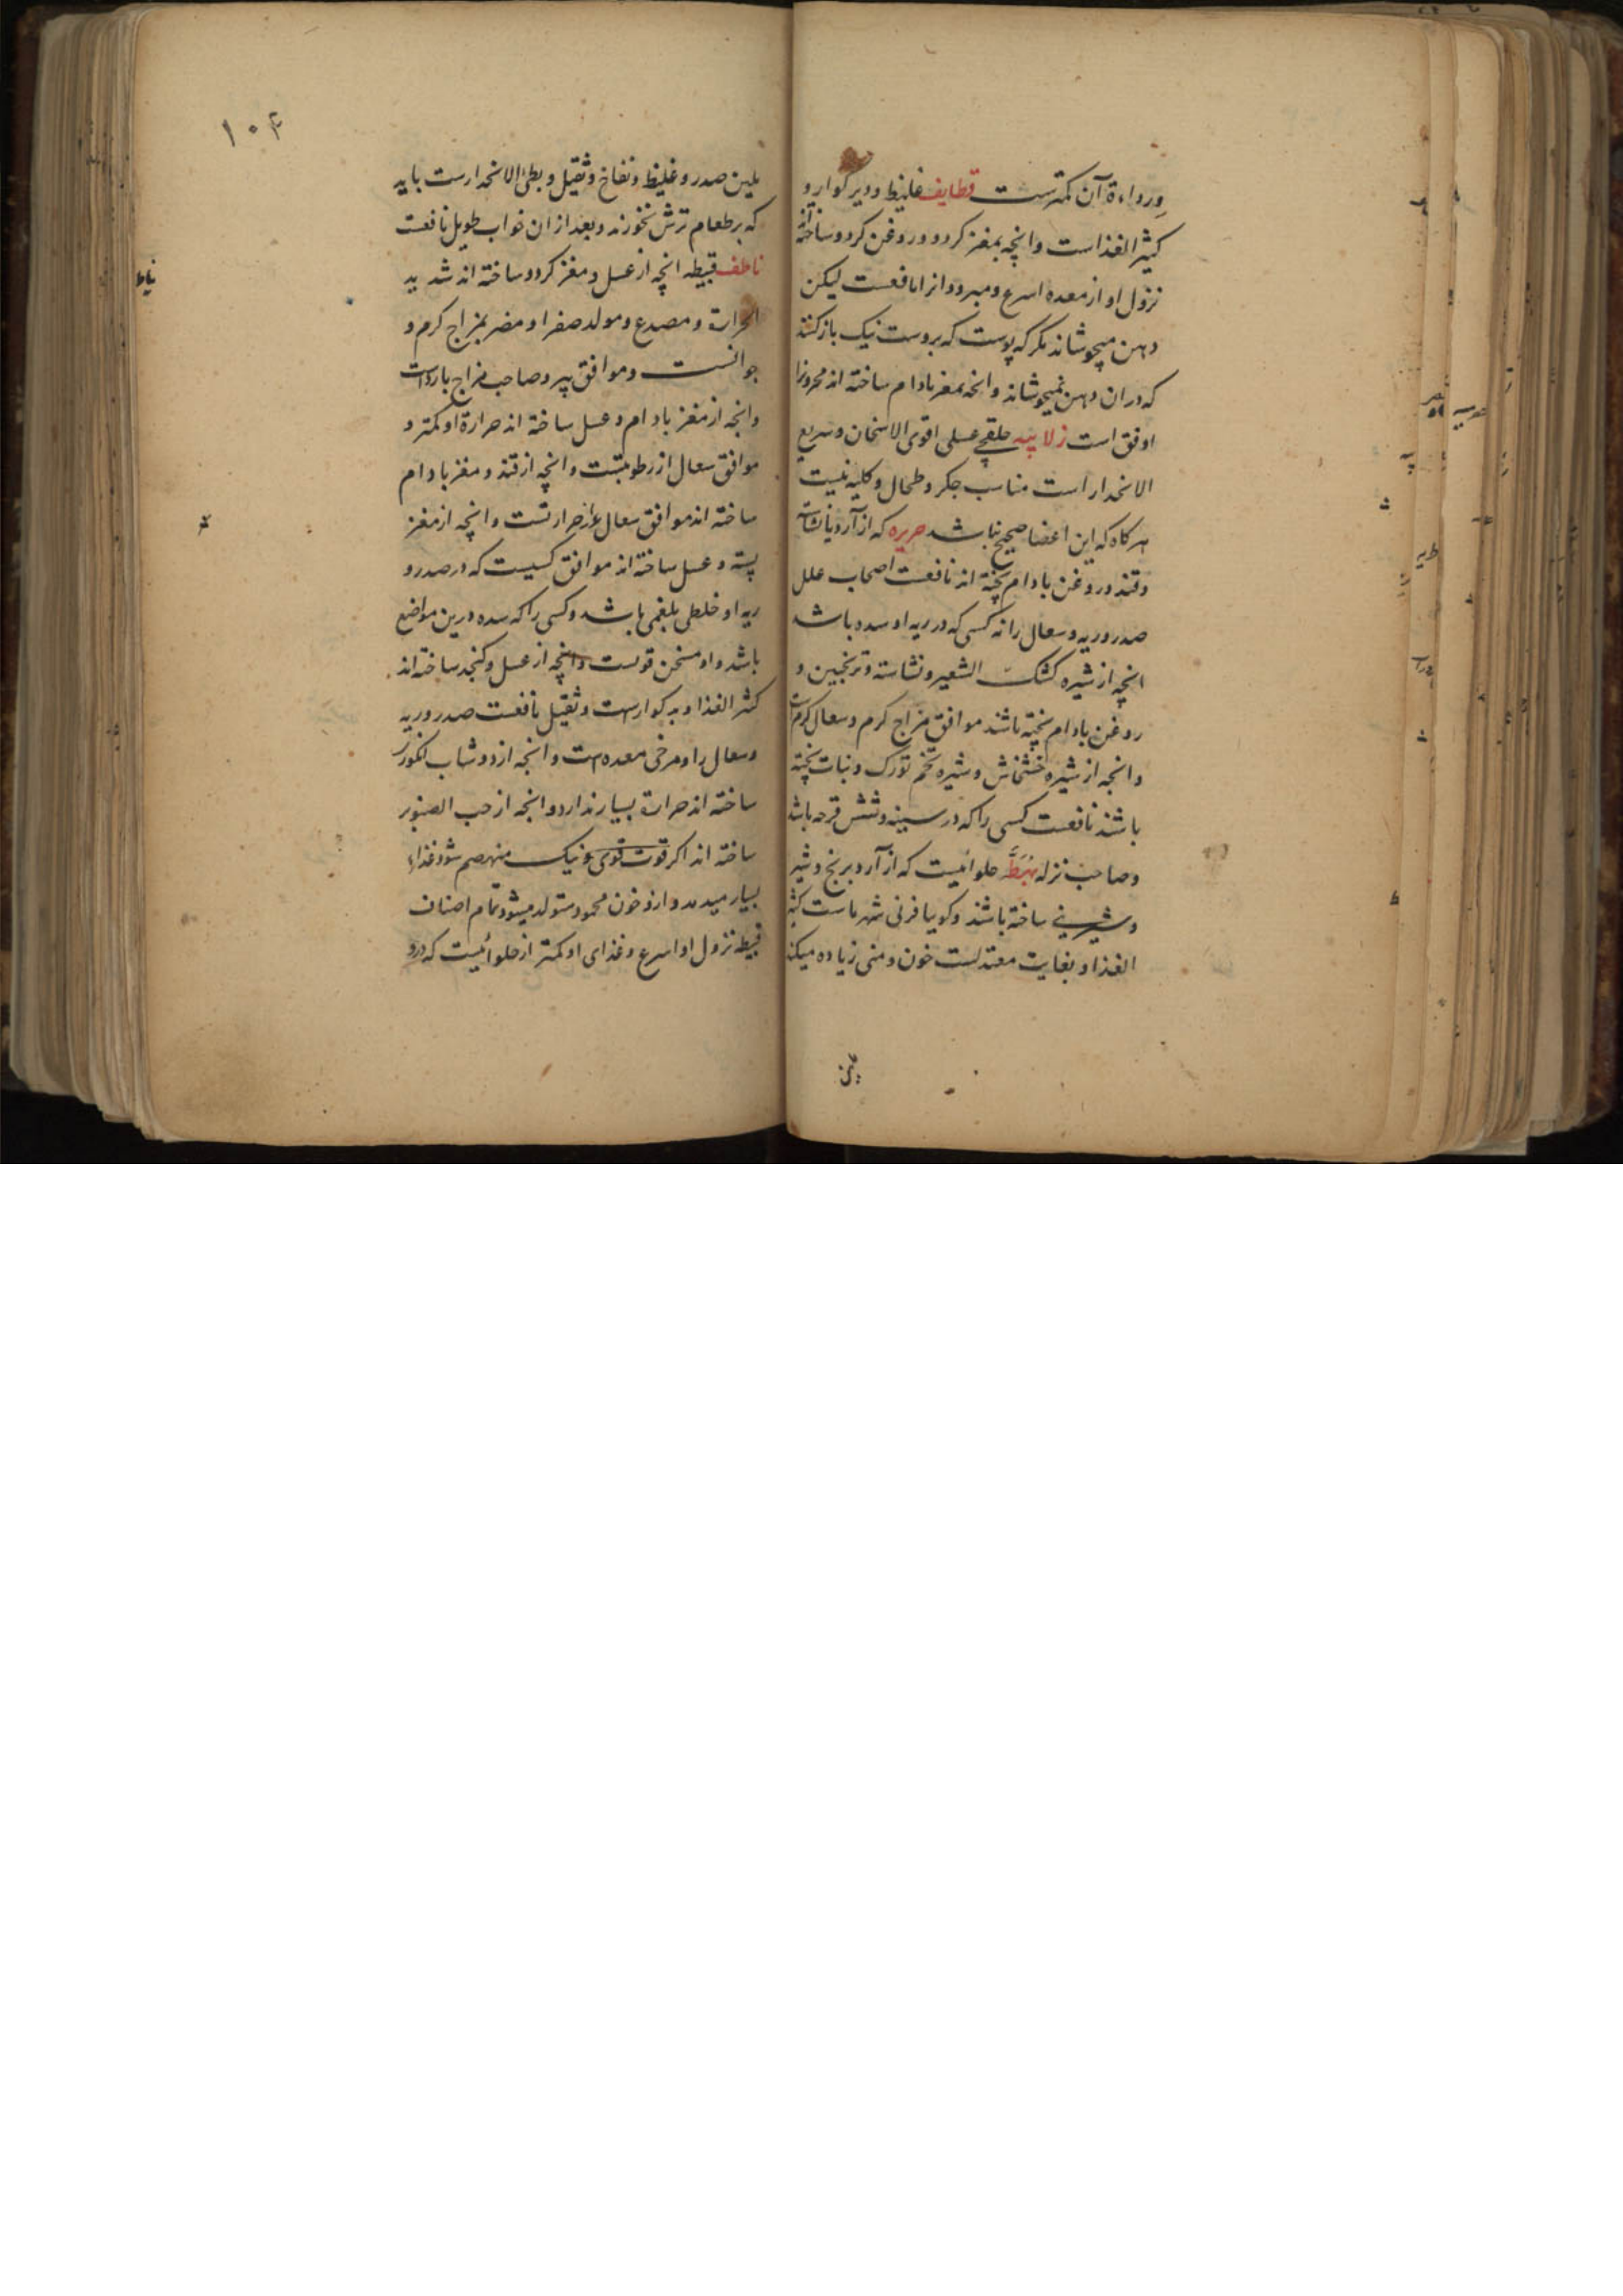 ورداءة آن کمترست قطایف غلیظ و دیر کوار و
کثیر الغذاست وانچه بمغز کردو و روغن کردو ساخته اند
نزول او از معده اسرع و مبرودانرا نافعست لیکن
دهن میجوشاند مکر که پوست که بروست نیک بازکنند
که دران دهن نمیجوشاند وانجه بمغز بادام ساخته اند محرورانرا
اوفق است زلابیه حلقچی عسلی اقوی الاسخان و سریع
الانحدار است مناسب جکر و طحال و کلیه نیست
هرکاه که این اعضا صحیح نباشد حریره که از آرد یا نشاسته
وقند و روغن بادام پخته اند نافعست اصحاب علل
صدر و ریه و سعال را نه کسی که در ریه او سده باشد
انچه از شیره کشک الشعیر و نشاسته و ترنجبین و
روغن بادام پخته باشند موافق مزاج کرم و سعال کرمست
وانجه از شیره خشخاش و شیره تخم تورک و نبات پخته
باشند نافعست کسی را که در سینه و شش قرحه باشد
وصاحب نزله بهطه حلوائیست که از آرد برنج و شیر
و شیرینی ساخته باشند و کویا فرنی شهر ماست کثیر
الغذا و بغایت معتدلست خون و منی زیاده میکند
۱۰۴
ملین صدر و غلیظ و نفاخ و ثقیل و بطئ الانحدارست باید
که بر طعام ترش نخورند و بعد از ان خواب طویل نافعست
ناطف قبیطه انچه از عسل و مغز کردو ساخته اند شدید
الحرارة و مصدع و مولد صفرا و مضر بمزاج کرم و
جوانست و موافق پیر و صاحب مزاج باردست
وانجه از مغز بادام و عسل ساخته اند حرارة او کمتر و
موافق سعال از رطوبتست وانچه از قند و مغز بادام
ساخته اند موافق سعال از حرارتست وانچه از مغز
پسته و عسل ساخته اند موافق کسیست که در صدر و
ریه او خلطی بلغمی باشد و کسی را که سده درین مواضع
باشد و او مسخن قویست وانچه از عسل و کنجد ساخته اند
کثیر الغذا و بد کوارست و ثقیل نافعست صدر و ریه
وسعال را و مرخی معده است وانجه از دوشاب انکور
ساخته اند حرارة بسیار ندارد وانجه از حب الصنوبر
ساخته اند اکر قوت قوی و نیک منهضم شود غذاء
بسیار میدهد و ازو خون محمود متولد میشود تمام اصناف
قبیطه نزول او اسرع و غذای او کمتر از حلوائیست که درو